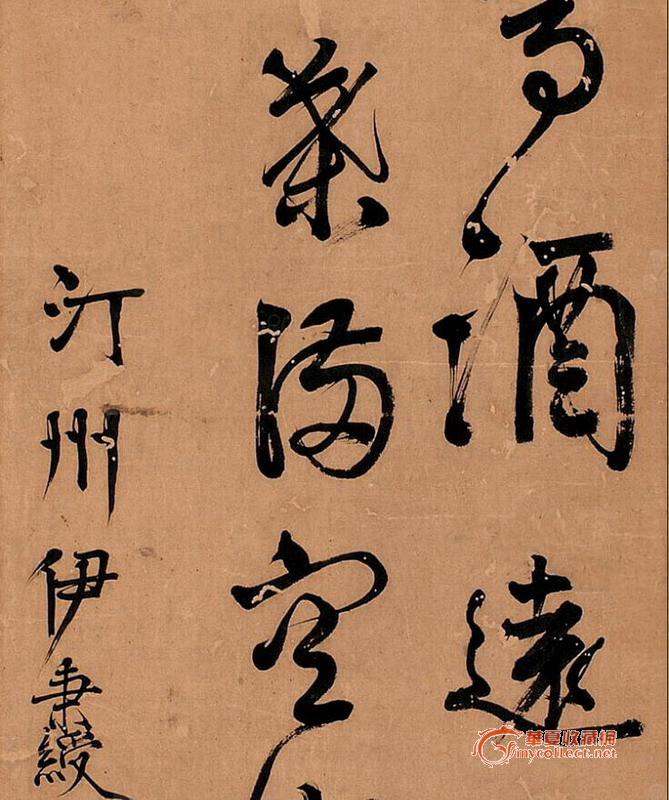 酒遠
葉滿空
汀州伊秉綬
華夏收藏網
mycollect.net